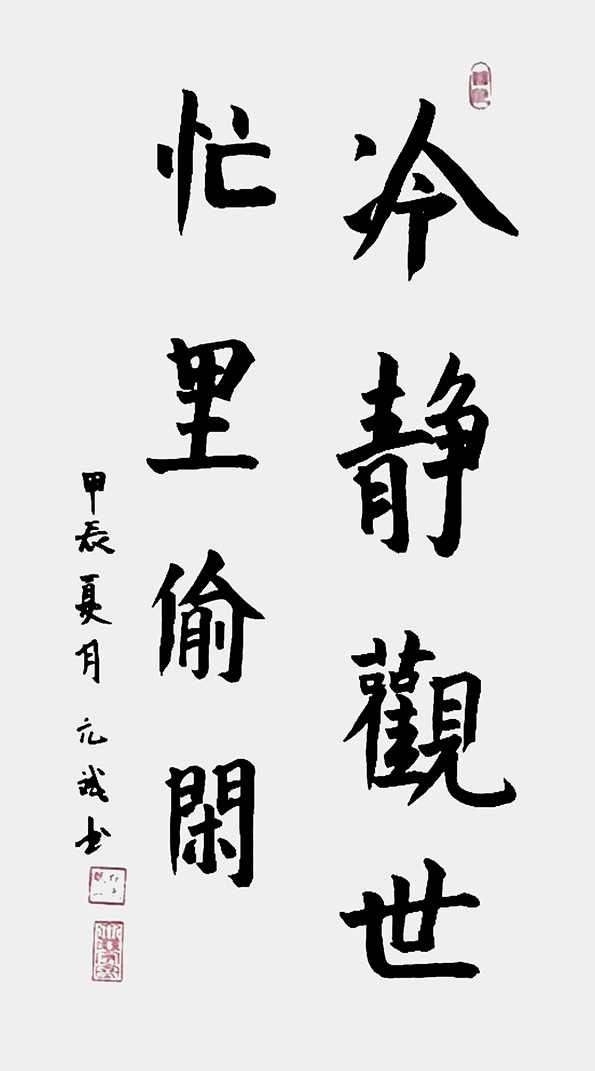 冷靜觀世
忙里偷閑
甲辰夏月 元斌书